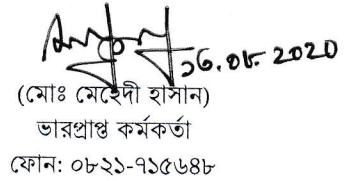 ১৬.০৮.2020
(মোঃ মেহেদী হাসান)
ভারপ্রাপ্ত কর্মকর্তা
ফোন: ০৮২১-৭১৫৬৪৮